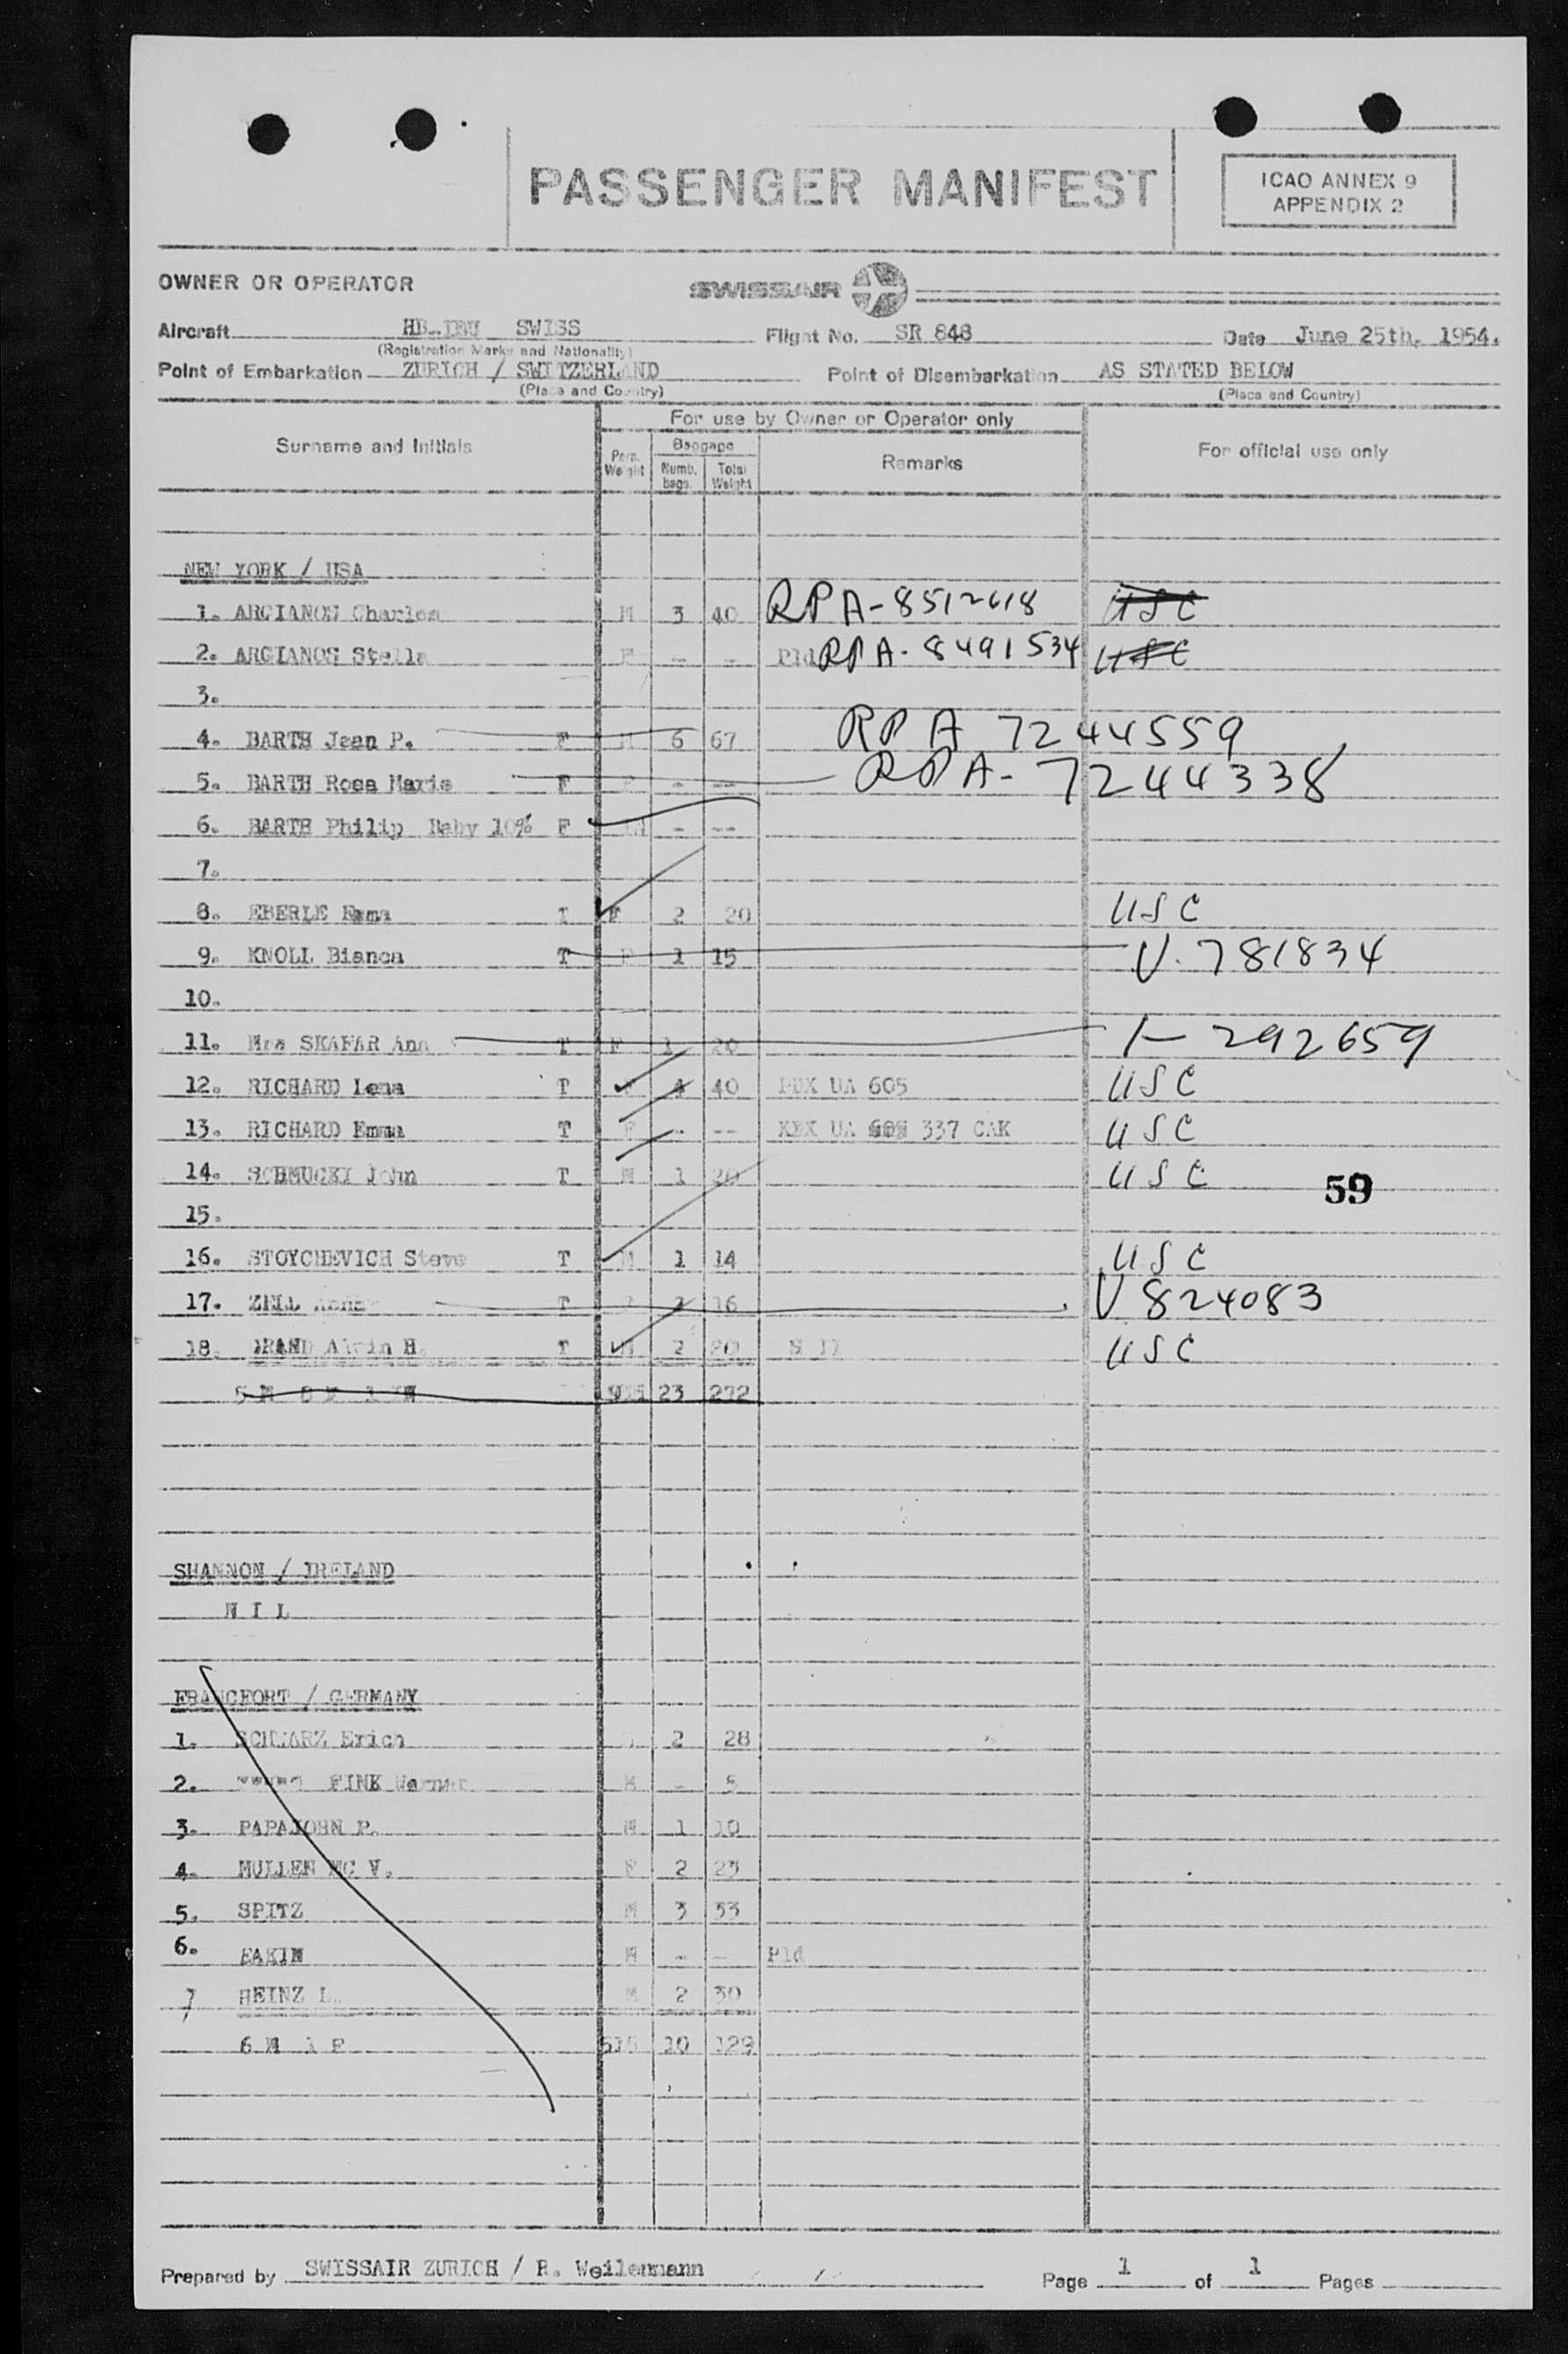 PASSENGER MANIFEST
ICAO ANNEX 9
APPENDIX 2
OWNER OR OPERATOR SWISSAIR
Aircraft SWISS Flight No. SR 848 Date June 25th, 1954.
(Registration Marks and Nationality)
Point of Embarkation ZURICH / SWITZERLAND Point of Disembarkation AS STATED BELOW
(Place and Country) (Place and Country)
For use by Owner or Operator only
Surname and Initials Pers. Weight Baggage Numb. bags Total Weight Remarks For official use only
NEW YORK / USA
1. ARGIANOS Charles M 3 40 RPA-8512618 USC
2. ARGIANOS Stella F - - Pld RPA-8491534 USC
3.
4. BARTH Jean P. F M 6 67 RPA 7244559
5. BARTH Rosa Marie F F - -- RPA-7244338
6. BARTH Philip Baby 10% F - --
7.
8. EBERLE Emma T F 2 20 USC
9. KNOLL Bianca T F 1 15 V-781834
10.
11. Mrs SKAFAR Ana T F 1 20 I-292659
12. RICHARD Lena T 4 40 PDX UA 605 USC
13. RICHARD Emma T F - -- UA 337 CAK USC
14. SCHMUCKI John T M 1 20 USC
59
15.
16. STOYCHEVICH Steve T M 1 14 USC
17. ZELL T 16 V 824083
18. Alvin H. T M 2 20 USC
23 272
SHANNON / IRELAND
N I L
FRANCFORT / GERMANY
1. SCHWARZ Erich 2 28
2. FINK Werner M - 5
3. PAPAJOHN P. M 1 10
4. MULLEN MC V. F 2 23
5. SPITZ M 3 33
6. EAKIN M - - Pld
7 HEINZ L. M 2 30
6 M 1 F 515 10 129
Prepared by SWISSAIR ZURICH / R. Weilenmann Page 1 of 1 Pages